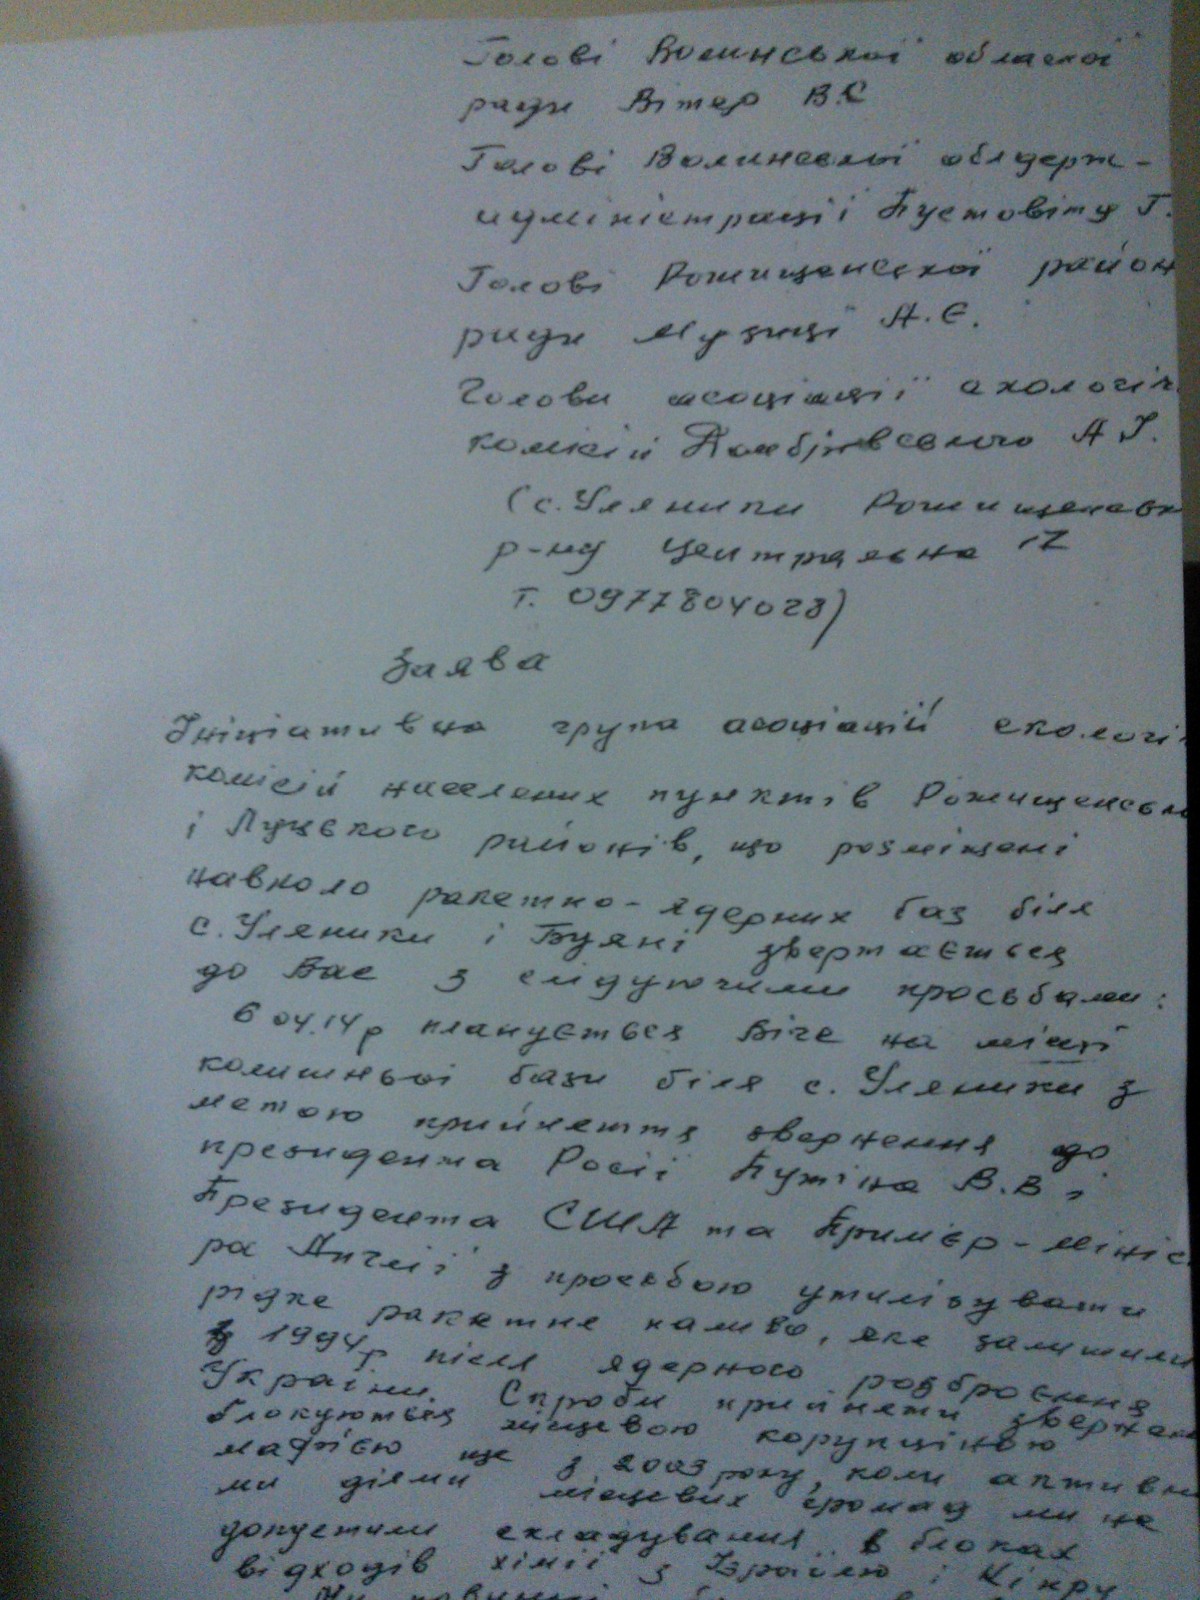 Голові Волинської обласної
ради Вітер В.С
Голові Волинської облдерж-
адміністрації Пустовіту Г.
Голові Рожищенської район
ради Музиці А.Є.
Голови асоціації екологіч
комісій А І.
(с. Уляники Рожищенськ
р-ну Центральна 12
т. 0977804028)
Заява
Ініціативна група асоціацій екологі
комісій населених пунктів Рожищенськ
і Луцького районів, що розміщені
навколо ракетно-ядерних баз біля
с. Уляники і Буяні звертається
до Вас з слідуючими просьбами:
6 04.14р планується Віче на місці
колишньої бази біля с. Уляники з
метою прийняття звернення до
президента Росії Путіна В.В і
Президента США та Примєр-мініс
ра Англії з просьбою утилізувати
рідке ракетне паливо, яке залишили
з 1994р після ядерного розброєння
України. Спроби прийняти звернен
блокуються місцевою корупційною
мафією ще з 2003 року, коли активни
ми діями місцевих громад ми не
допустили складування в блоках
відходів хімії з Ізраїлю і Кіпру